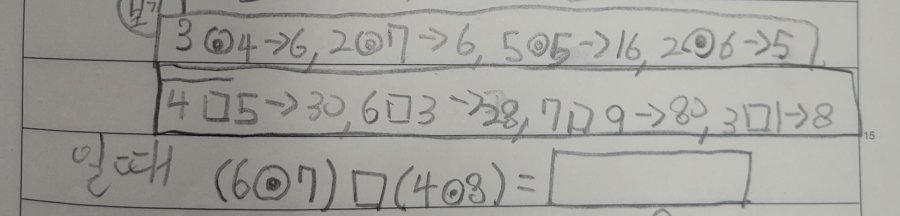 보기
3◉4→6, 2◉7→6, 5◉5→16, 2◉6→5
4□5→30, 6□3→28, 7□9→80, 3□1→8
15
일때 (6◉7)□(4◉8)=